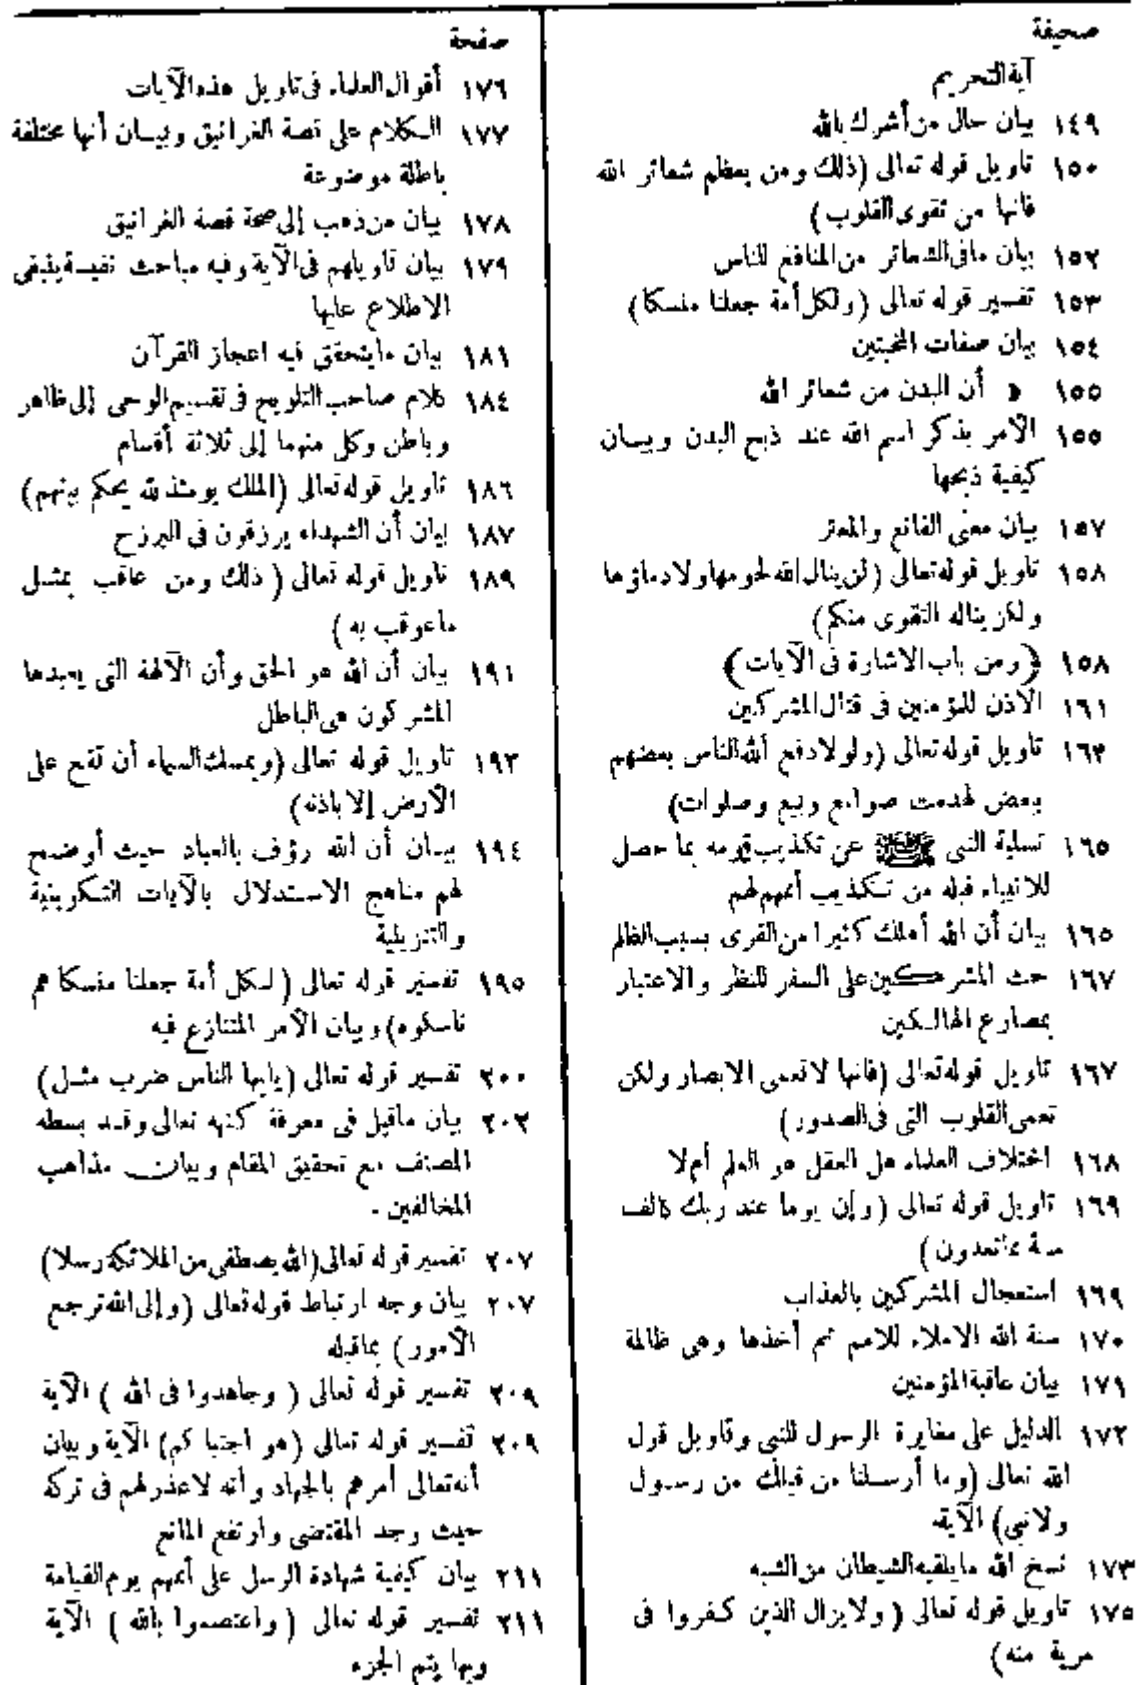 صحيفة
آية التحريم
١٤٩ بيان حال من أشرك بالله
١٥٠ تاويل قوله تعالى (ذلك ومن يعظم شعائر الله
فانها من تقوى القلوب)
١٥٢ بيان مافى الشعائر من المنافع للناس
١٥٣ تفسير قوله تعالى (ولكل أمة جعلنا منسكا)
١٥٤ بيان صفات المخبتين
١٥٥ « أن البدن من شعائر الله
١٥٥ الأمر بذكر اسم الله عند ذبح البدن وبيان
كيفية ذبحها
١٥٧ بيان معنى القانع والمعتر
١٥٨ تاويل قوله تعالى (لن ينال الله لحومها ولا دماؤها
ولكن يناله التقوى منكم)
١٥٨ ﴿ومن باب الاشارة فى الآيات﴾
١٦١ الاذن للمؤمنين فى قتال المشركين
١٦٣ تاويل قوله تعالى (ولولا دفع الله الناس بعضهم
ببعض لهدمت صوامع وبيع وصلوات)
١٦٥ تسلية النبى ﷺ عن تكذيب قومه بما حصل
للانبياء قبله من تكذيب أممهم لهم
١٦٥ بيان أن الله أهلك كثيرا من القرى بسبب الظلم
١٦٧ حث المشركين على السفر للنظر والاعتبار
بمصارع الهالكين
١٦٧ تاويل قوله تعالى (فانها لاتعمى الابصار ولكن
تعمى القلوب التى فى الصدور)
١٦٨ اختلاف العلماء هل العقل هو العلم أم لا
١٦٩ تاويل قوله تعالى (وإن يوما عند ربك كالف
سنة مما تعدون)
١٦٩ استعجال المشركين بالعذاب
١٧٠ سنة الله الاملاء للامم ثم أخذها وهى ظالمة
١٧١ بيان عاقبة المؤمنين
١٧٢ الدليل على مغايرة الرسول للنبى وتاويل قول
الله تعالى (وما أرسلنا من قبلك من رسول
ولانبى) الآية
١٧٣ نسخ الله مايلقيه الشيطان من الشبه
١٧٥ تاويل قوله تعالى (ولايزال الذين كفروا فى
مرية منه)
صفحة
١٧٦ أقوال العلماء فى تاويل هذه الآيات
١٧٧ الكلام على قصة الغرانيق وبيان أنها مختلقة
باطلة موضوعة
١٧٨ بيان من ذهب إلى صحة قصة الغرانيق
١٧٩ بيان تاويلهم فى الآية وفيه مباحث نفيسة ينبغى
الاطلاع عليها
١٨١ بيان مايتحقق فيه اعجاز القرآن
١٨٤ كلام صاحب التلويح فى تقسيم الوحى إلى ظاهر
وباطن وكل منهما إلى ثلاثة أقسام
١٨٦ تاويل قوله تعالى (الملك يومئذ لله يحكم بينهم)
١٨٧ بيان أن الشهداء يرزقون فى البرزخ
١٨٩ تاويل قوله تعالى (ذلك ومن عاقب بمثل
ماعوقب به)
١٩١ بيان أن الله هو الحق وأن الآلهة التى يعبدها
المشركون هى الباطل
١٩٣ تاويل قوله تعالى (ويمسك السماء أن تقع على
الأرض إلا باذنه)
١٩٤ بيان أن الله رؤف بالعباد حيث أوضح
لهم مناهج الاستدلال بالآيات التكوينية
والتنزيلية
١٩٥ تفسير قوله تعالى (لكل أمة جعلنا منسكا هم
ناسكوه) وبيان الأمر المتنازع فيه
٢٠٠ تفسير قوله تعالى (ياأيها الناس ضرب مثل)
٢٠٢ بيان ماقيل فى معرفة كنهه تعالى وقد بسطه
المصنف مع تحقيق المقام وبيان مذاهب
المخالفين .
٢٠٧ تفسير قوله تعالى (الله يصطفى من الملائكة رسلا)
٢٠٧ بيان وجه ارتباط قوله تعالى (وإلى الله ترجع
الأمور) بماقبله
٢٠٩ تفسير قوله تعالى (وجاهدوا فى الله) الآية
٢٠٩ تفسير قوله تعالى (هو اجتباكم) الآية وبيان
أنه تعالى أمرهم بالجهاد وأنه لاعذر لهم فى تركه
حيث وجد المقتضى وارتفع المانع
٢١١ بيان كيفية شهادة الرسل على أممهم يوم القيامة
٢١١ تفسير قوله تعالى (واعتصموا بالله) الآية
وبها يتم الجزء